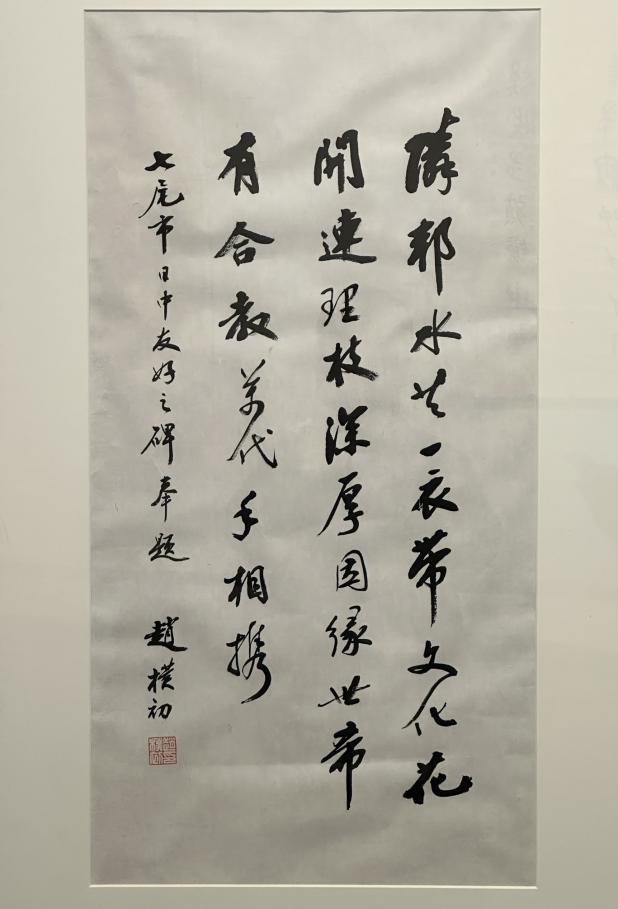 隣邦水共一衣帶文化花
開連理枝深厚因緣世希
有合教萬代手相携
七尾市日中友好之碑奉題 趙樸初